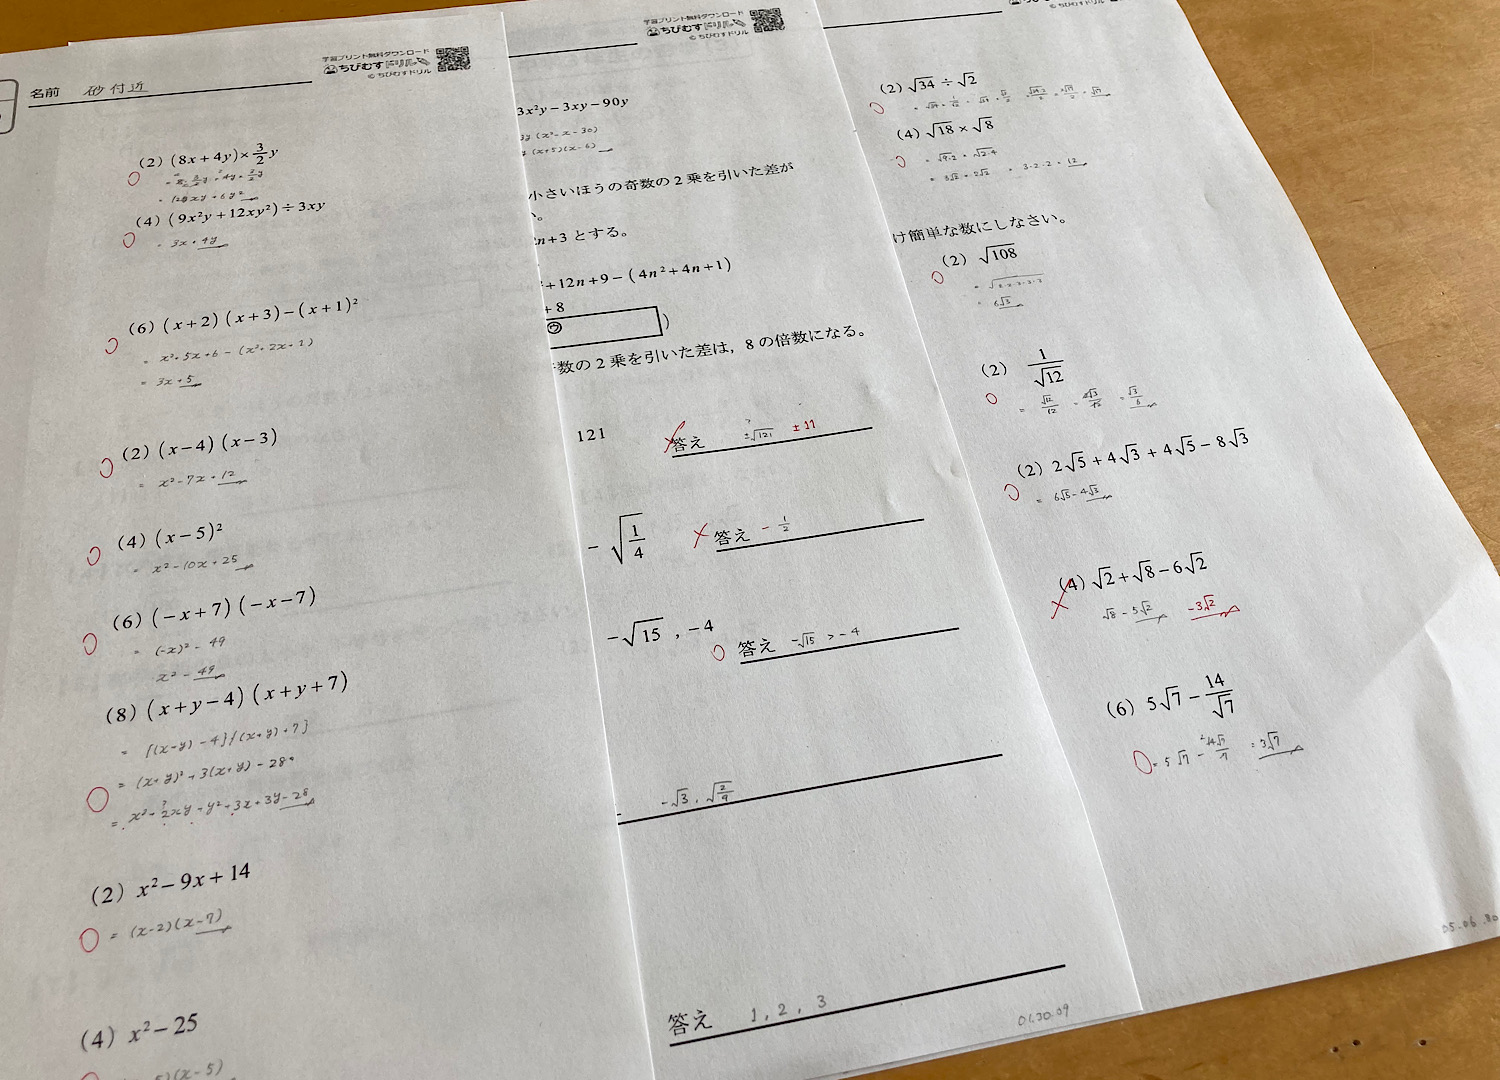 学習プリント無料ダウンロード
ちびむすドリル
© ちびむすドリル
名前 砂付近
(2) (8x+4y)×3/2y
= 8x·3/2y + 4y×3/2y
= 12xy+6y²
(4) (9x²y+12xy²)÷3xy
= 3x+4y
(6) (x+2)(x+3)−(x+1)²
= x²+5x+6−(x²+2x+1)
= 3x+5
(2) (x−4)(x−3)
= x²−7x+12
(4) (x−5)²
= x²−10x+25
(6) (−x+7)(−x−7)
= (−x)²−49
x²−49
(8) (x+y−4)(x+y+7)
= {(x+y)−4}{(x+y)+7}
= (x+y)²+3(x+y)−28
= x²+2xy+y²+3x+3y−28
(2) x²−9x+14
= (x−2)(x−7)
(4) x²−25
5)(x−5)
学習プリント無料ダウンロード
ちびむすドリル
© ちびむすドリル
3x²y−3xy−90y
3y(x²−x−30)
(x+5)(x−6)
小さいほうの奇数の2乗を引いた差が
い。
2n+3とする。
+12n+9−(4n²+4n+1)
+8
㋒ )
数の2乗を引いた差は，8の倍数になる。
121
答え ±√121 ±11
−√1/4
答え −1/2
−√15 , −4
答え −√15 > −4
−√3 , √2/9
答え 1, 2, 3
01.30.09
© ちびむすドリル
(2) √34÷√2
(4) √18×√8
= √9·2 × √2·4
= 3√2 × 2√2 = 3·2·2 = 12
け簡単な数にしなさい。
(2) √108
= 6√3
(2) 1/√12
= √12/12 = 2√3/12 = √3/6
(2) 2√5+4√3+4√5−8√3
= 6√5−4√3
(4) √2+√8−6√2
√8−5√2 −3√2
(6) 5√7−14/√7
= 5√7−14√7/7 = 3√7
05.06.80